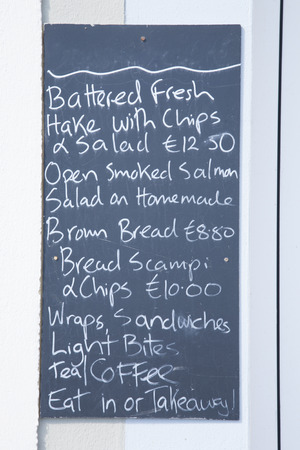 Battered Fresh
Hake with Chips
& Salad £12.50
Open Smoked Salmon
Salad on Homemade
Brown Bread £8.80
Bread Scampi
& Chips £10.00
Wraps, Sandwiches
Light Bites
Tea/Coffee
Eat in or Takeaway!